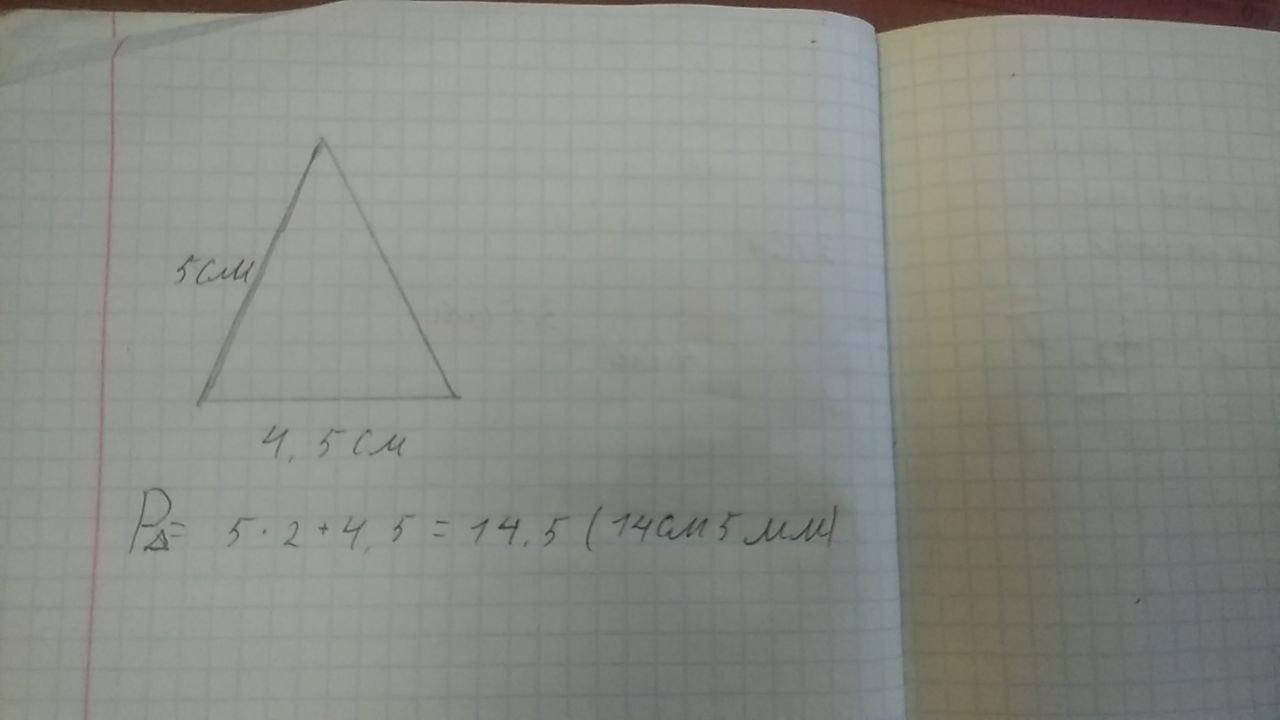 5см
4,5см
P△= 5·2+4,5=14,5(14см5мм)